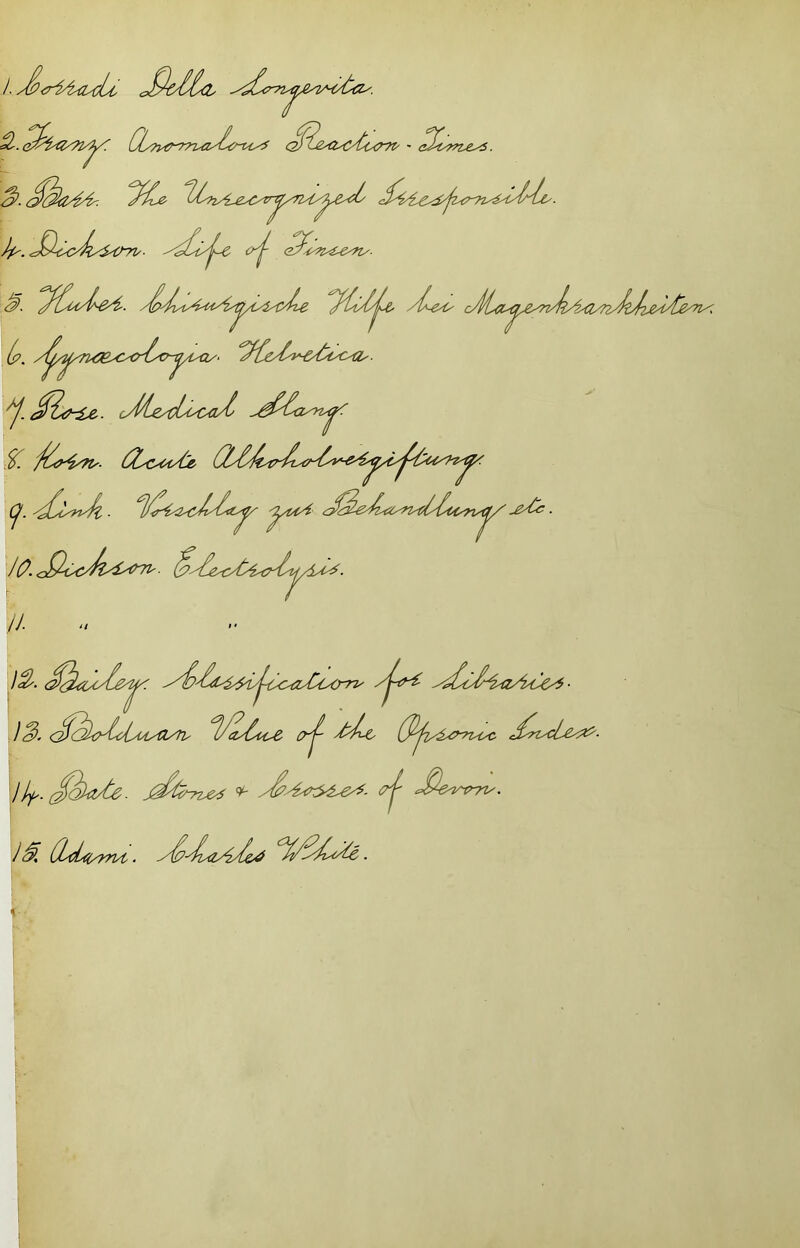 1. Corradi Della Longevita.
2. Franz. Anomalous Reaction - Times.
3. Barr. The Unrecognized Irresponsible.
4. Dickson. Life of Finsen.
5. Huber. Chirurgische Hilfe bei Magenkrankheiten.
6. Gynaecologia. Helvetica.
7. Rose. Medical Slang
8. Korn. Acute Alkoholvergiftung.
9. Link. Vorschlag zur Behandlung etc.
10. Dickson. Electrolysis.
11. " "
12. Bailey. Classification for Libraries.
13. Boltuan Value of the Opsonic Index.
14. Bate. Stones & Crosses. of Devon.
15. Adami. Charles White.